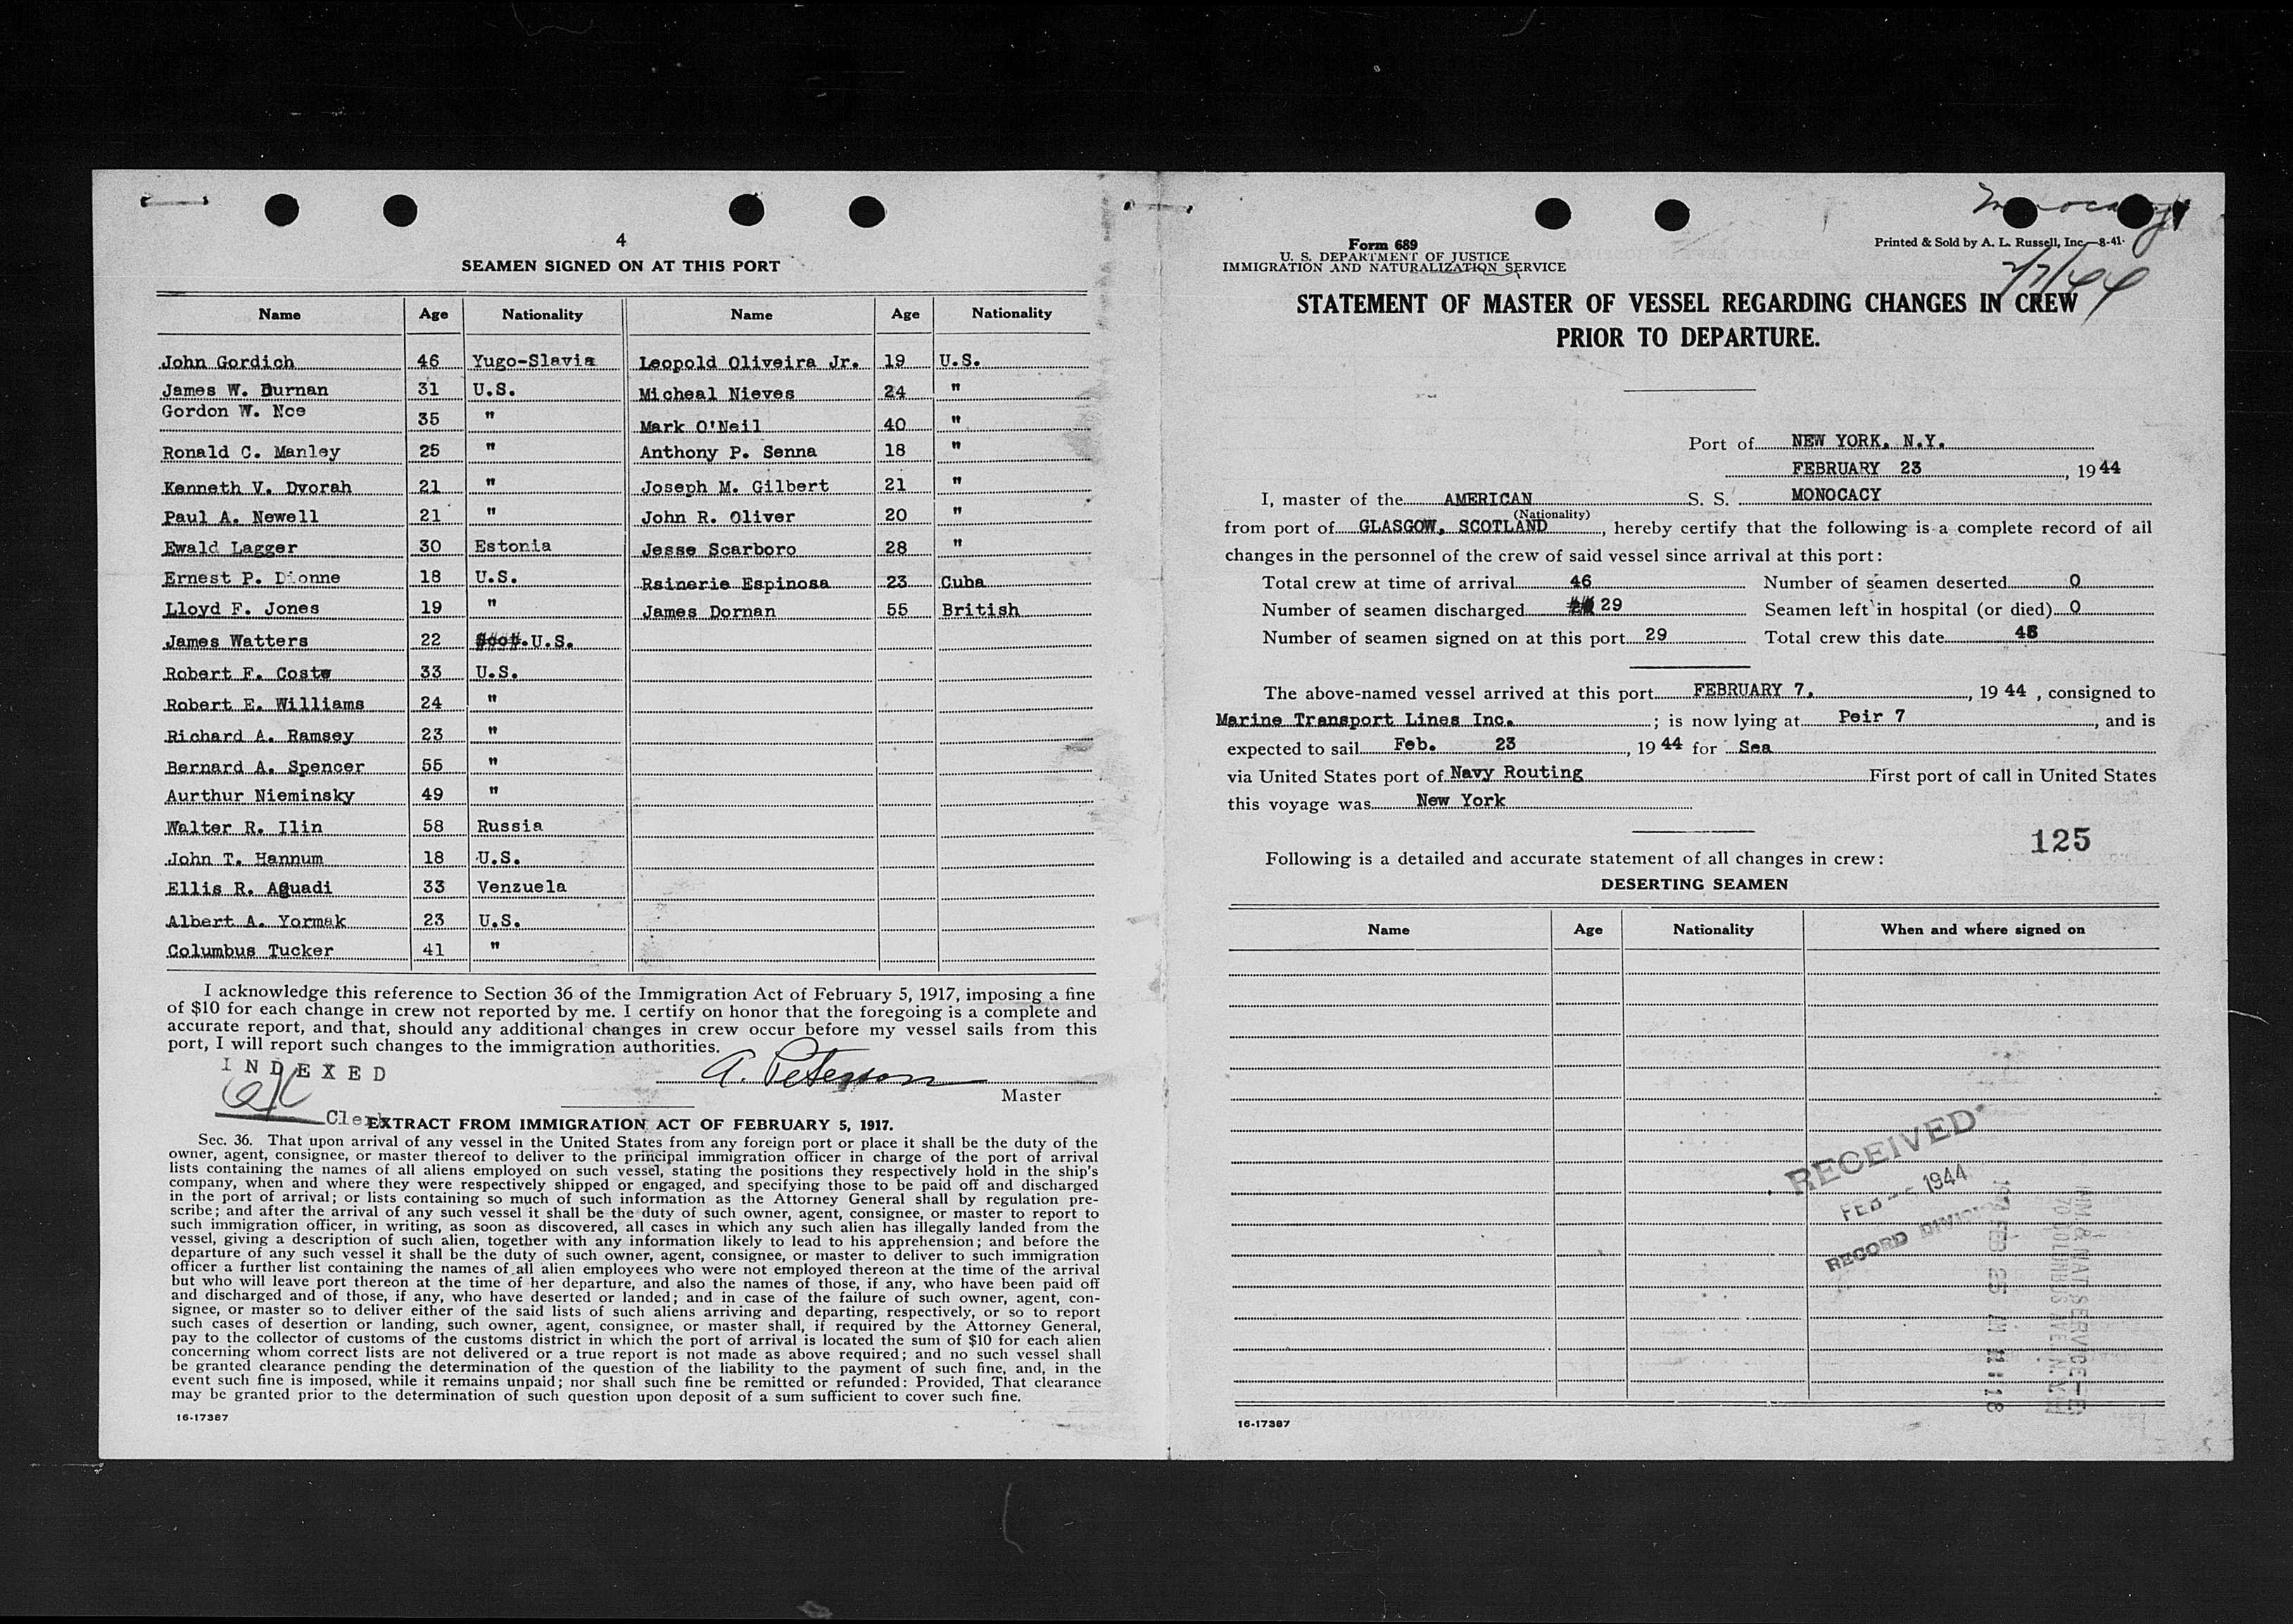 4
SEAMEN SIGNED ON AT THIS PORT
Name Age Nationality Name Age Nationality
John Gordich 46 Yugo-Slavia Leopold Oliveira Jr. 19 U.S.
James W. Durnan 31 U.S. Micheal Nieves 24 "
Gordon W. Noe 35 " Mark O'Neil 40 "
Ronald C. Manley 25 " Anthony P. Senna 18 "
Kenneth V. Dvorah 21 " Joseph M. Gilbert 21 "
Paul A. Newell 21 " John R. Oliver 20 "
Ewald Lagger 30 Estonia Jesse Scarboro 28 "
Ernest P. Dionne 18 U.S. Rsinerie Espinosa 23 Cuba
Lloyd F. Jones 19 " James Dornan 55 British
James Watters 22 U.S.
Robert F. Coste 33 U.S.
Robert E. Williams 24 "
Richard A. Ramsey 23 "
Bernard A. Spencer 55 "
Aurthur Nieminsky 49 "
Walter R. Ilin 58 Russia
John T. Hannum 18 U.S.
Ellis R. Aguadi 33 Venzuela
Albert A. Yormak 23 U.S.
Columbus Tucker 41 "
I acknowledge this reference to Section 36 of the Immigration Act of February 5, 1917, imposing a fine
of $10 for each change in crew not reported by me. I certify on honor that the foregoing is a complete and
accurate report, and that, should any additional changes in crew occur before my vessel sails from this
port, I will report such changes to the immigration authorities.
INDEXED
A. Peterson
Master
Clerk
EXTRACT FROM IMMIGRATION ACT OF FEBRUARY 5, 1917.
Sec. 36. That upon arrival of any vessel in the United States from any foreign port or place it shall be the duty of the
owner, agent, consignee, or master thereof to deliver to the principal immigration officer in charge of the port of arrival
lists containing the names of all aliens employed on such vessel, stating the positions they respectively hold in the ship's
company, when and where they were respectively shipped or engaged, and specifying those to be paid off and discharged
in the port of arrival; or lists containing so much of such information as the Attorney General shall by regulation pre-
scribe; and after the arrival of any such vessel it shall be the duty of such owner, agent, consignee, or master to report to
such immigration officer, in writing, as soon as discovered, all cases in which any such alien has illegally landed from the
vessel, giving a description of such alien, together with any information likely to lead to his apprehension; and before the
departure of any such vessel it shall be the duty of such owner, agent, consignee, or master to deliver to such immigration
officer a further list containing the names of all alien employees who were not employed thereon at the time of the arrival
but who will leave port thereon at the time of her departure, and also the names of those, if any, who have been paid off
and discharged and of those, if any, who have deserted or landed; and in case of the failure of such owner, agent, con-
signee, or master so to deliver either of the said lists of such aliens arriving and departing, respectively, or so to report
such cases of desertion or landing, such owner, agent, consignee, or master shall, if required by the Attorney General,
pay to the collector of customs of the customs district in which the port of arrival is located the sum of $10 for each alien
concerning whom correct lists are not delivered or a true report is not made as above required; and no such vessel shall
be granted clearance pending the determination of the question of the liability to the payment of such fine, and, in the
event such fine is imposed, while it remains unpaid; nor shall such fine be remitted or refunded: Provided, That clearance
may be granted prior to the determination of such question upon deposit of a sum sufficient to cover such fine.
16-17387
Monocacy
Form 689
U. S. DEPARTMENT OF JUSTICE
IMMIGRATION AND NATURALIZATION SERVICE
Printed & Sold by A. L. Russell, Inc.—8-41.
2/7/44
STATEMENT OF MASTER OF VESSEL REGARDING CHANGES IN CREW
PRIOR TO DEPARTURE.
Port of NEW YORK, N.Y.
FEBRUARY 23, 1944
I, master of the AMERICAN S. S. MONOCACY
(Nationality)
from port of GLASGOW, SCOTLAND, hereby certify that the following is a complete record of all
changes in the personnel of the crew of said vessel since arrival at this port:
Total crew at time of arrival 46 Number of seamen deserted 0
Number of seamen discharged 29 Seamen left in hospital (or died) 0
Number of seamen signed on at this port 29 Total crew this date 46
The above-named vessel arrived at this port FEBRUARY 7, 1944, consigned to
Marine Transport Lines Inc.; is now lying at Peir 7, and is
expected to sail Feb. 23, 1944 for Sea
via United States port of Navy Routing First port of call in United States
this voyage was New York
125
Following is a detailed and accurate statement of all changes in crew:
DESERTING SEAMEN
Name Age Nationality When and where signed on
RECEIVED
FEB 1944
RECORD DIVISION
IMM. & NAT SERVICE
70 COLUMBUS AVE. N.Y.
FEB 25 AM 11:18
16-17387